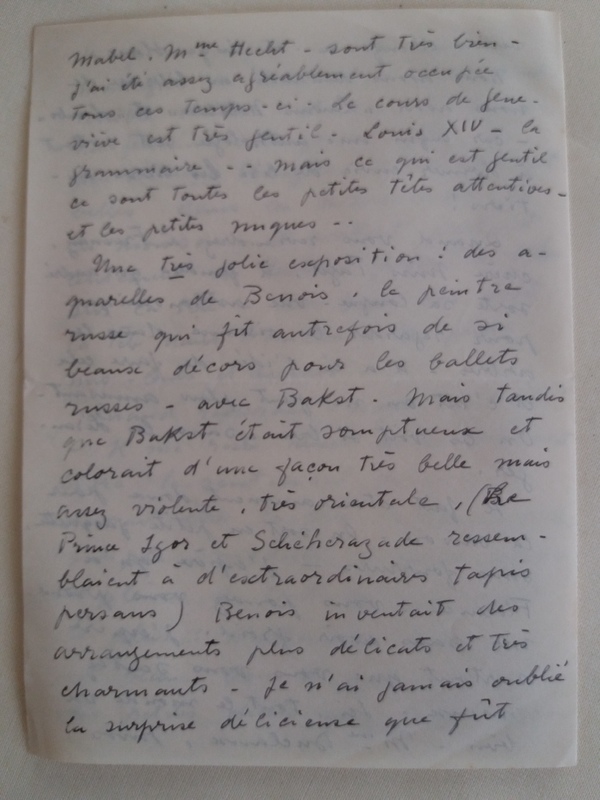 Mabel. Mme Hecht - sont très bien -
j'ai été assez agréablement occupée
tous ces temps-ci. Le cours de Gene-
viève est très gentil. Louis XIV - la
grammaire - - mais ce qui est gentil
ce sont toutes les petites têtes attentives -
et les petites nuques - -
Une très jolie exposition : des a-
quarelles de Benois, le peintre
russe qui fit autrefois de si
beaux décors pour les ballets
russes - avec Bakst. Mais tandis
que Bakst était somptueux et
colorait d'une façon très belle mais
assez violente, très orientale, (
Prince Igor et Schéhérazade ressem-
blaient à d'extraordinaires tapis
persans) Benois inventait des
arrangements plus délicats et très
charmants - Je n'ai jamais oublié
la surprise délicieuse que fût